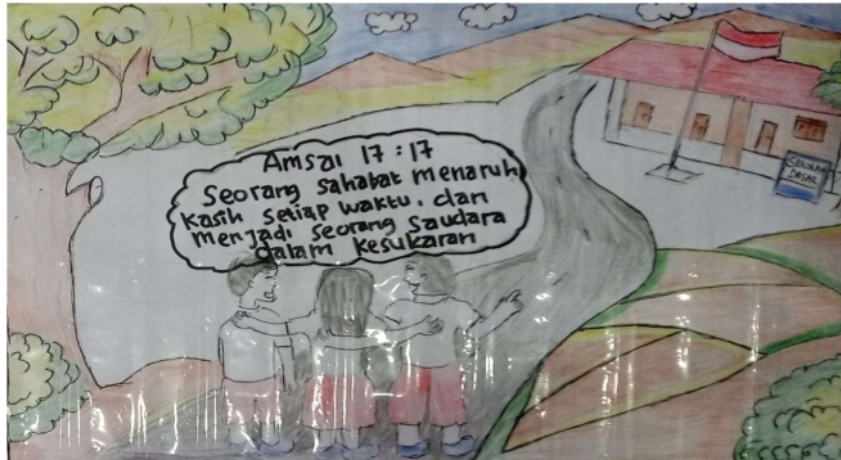 Amsal 17:17
Seorang sahabat menaruh
kasih setiap waktu, dan
menjadi seorang saudara
dalam kesukaran
SEKOLAH
DASAR